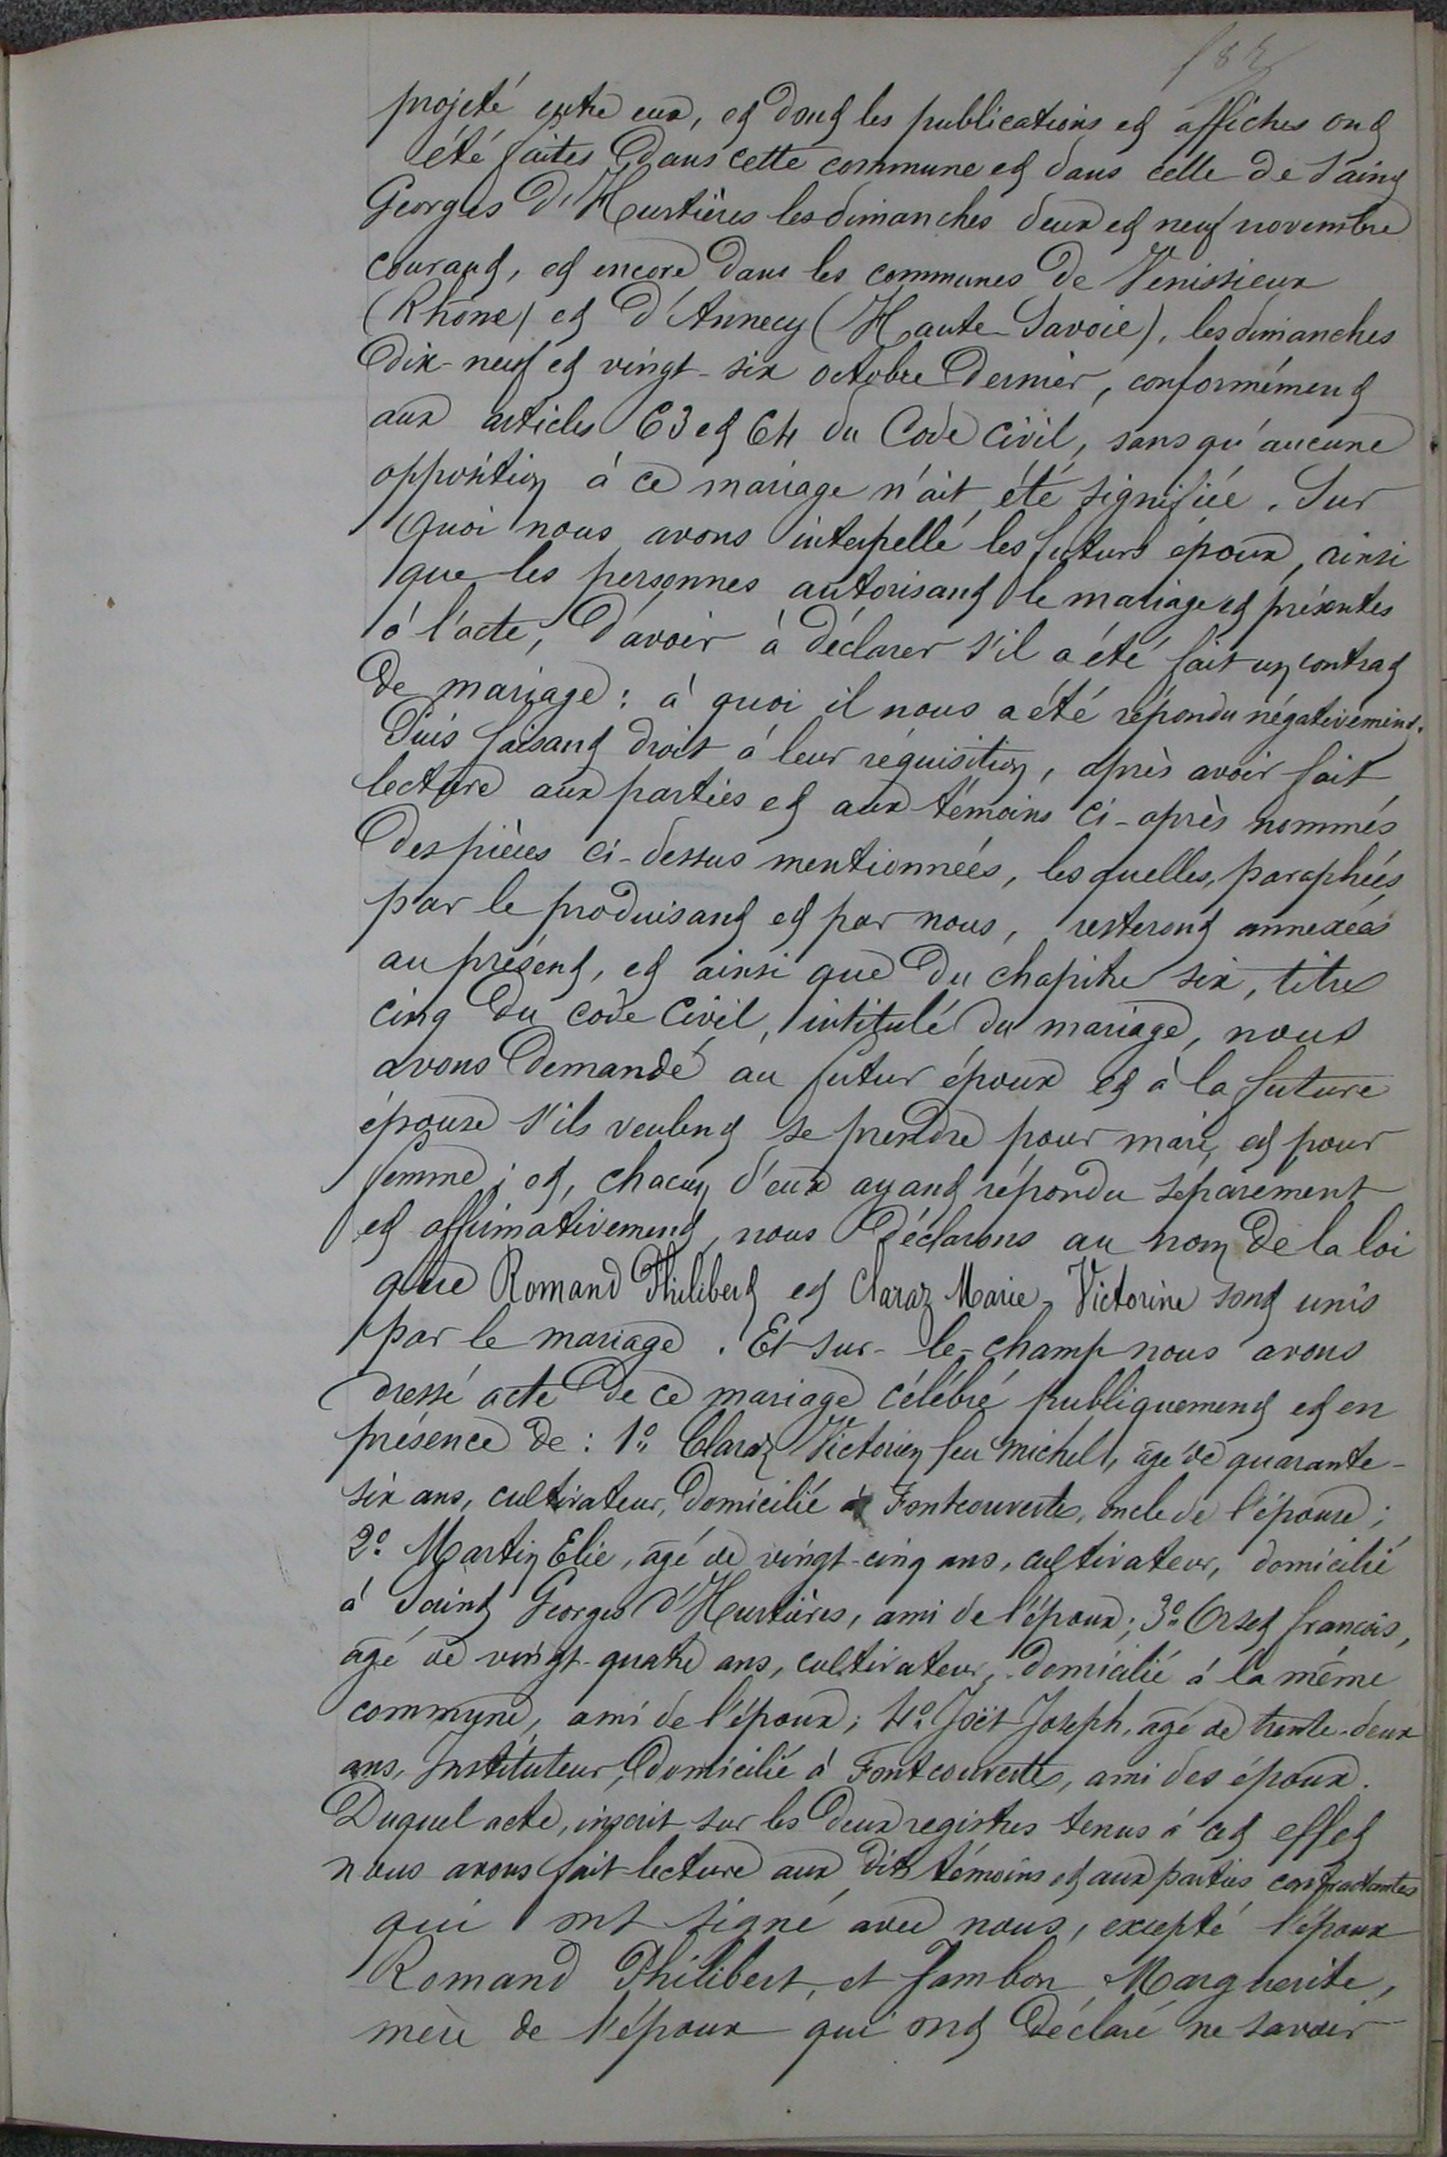 projeté entre eux, et dont les publications et affiches ont
été faites dans cette commune et dans celle de Saint
Georges d'Hurtières les dimanches deux et neuf novembre
courant, et encore dans les communes de Venissieux
(Rhône) et d'Annecy (Haute-Savoie), les dimanches
dix-neuf et vingt-six octobre dernier, conformément
aux articles 63 et 64 du Code civil, sans qu'aucune
opposition à ce mariage n'ait été signifiée. Sur
quoi nous avons interpellé les futurs époux, ainsi
que les personnes autorisant le mariage et présentes
à l'acte, d'avoir à déclarer s'il a été fait un contrat
de mariage : à quoi il nous a été répondu négativement.
Puis faisant droit à leur réquisition, après avoir fait
lecture aux parties et aux témoins ci-après nommés
des pièces ci-dessus mentionnées, lesquelles, paraphées
par le produisant et par nous, resteront annexées
au présent, et ainsi que du chapitre six, titre
cinq du code Civil, intitulé du mariage, nous
avons demandé au futur époux et à la future
épouse s'ils veulent se prendre pour mari et pour
femme ; et, chacun d'eux ayant répondu séparément
et affirmativement, nous déclarons au nom de la loi
que Romand Philibert et Claraz Marie Victorine sont unis
par le mariage. Et sur-le-champ nous avons
dressé acte de ce mariage célébré publiquement et en
présence de : 1° Claraz Victorien feu Michel, âgé de quarante-
six ans, cultivateur, domicilié à Fontcouverte, oncle de l'épouse ;
2° Martin Elie, âgé de vingt-cinq ans, cultivateur, domicilié
à Saint Georges d'Hurtières, ami de l'époux ; 3° Orset francois,
âgé de vingt-quatre ans, cultivateur, domicilié à la même
commune, ami de l'époux ; 4° Joët Joseph, âgé de trente-deux
ans, Instituteur, domicilié à Fontcouverte, ami des époux.
Duquel acte, inscrit sur les deux registres tenus à cet effet
nous avons fait lecture aux dits témoins et aux parties contractantes
qui ont signé avec nous, excepté l'époux
Romand Philibert, et Jambon Marguerite,
mère de l'époux qui ont déclaré ne savoir